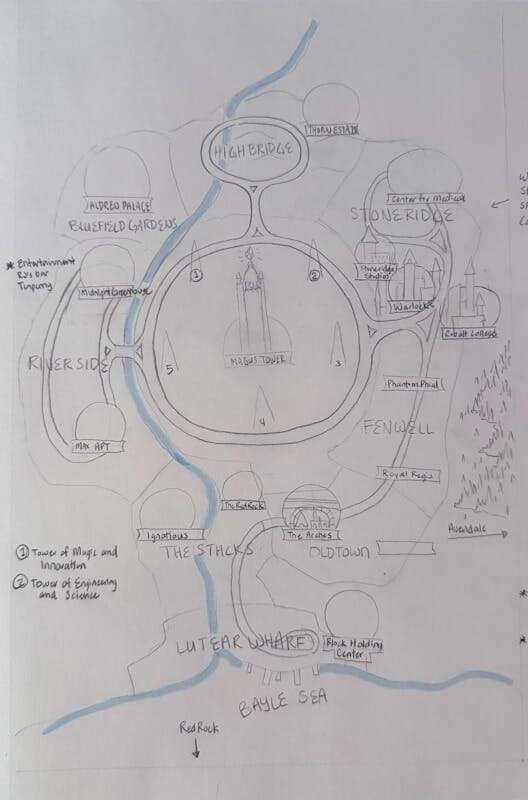 THORNESTAD
HIGHBRIDGE
ALDREO PALACE
BLUEFIELD GARDENS
Center for Medical
STONERIDGE
* Entertainment
Midnight Greenhouse
1
2
Stoneridge
Studios
Warlocks
Cobalt College
RIVERSIDE
MAGUS TOWER
5
3
4
Phantom Phial
FENWELL
MAX APT
Royal Regis
The Red Rock
Ignatious
THE STACKS
The Arches
OLDTOWN
Avendale
1 Tower of Magic and
Innovation
2 Tower of Engineering
and Science
LUTEAR WHARF
Black Holding
Center
BAYLE SEA
Red Rock